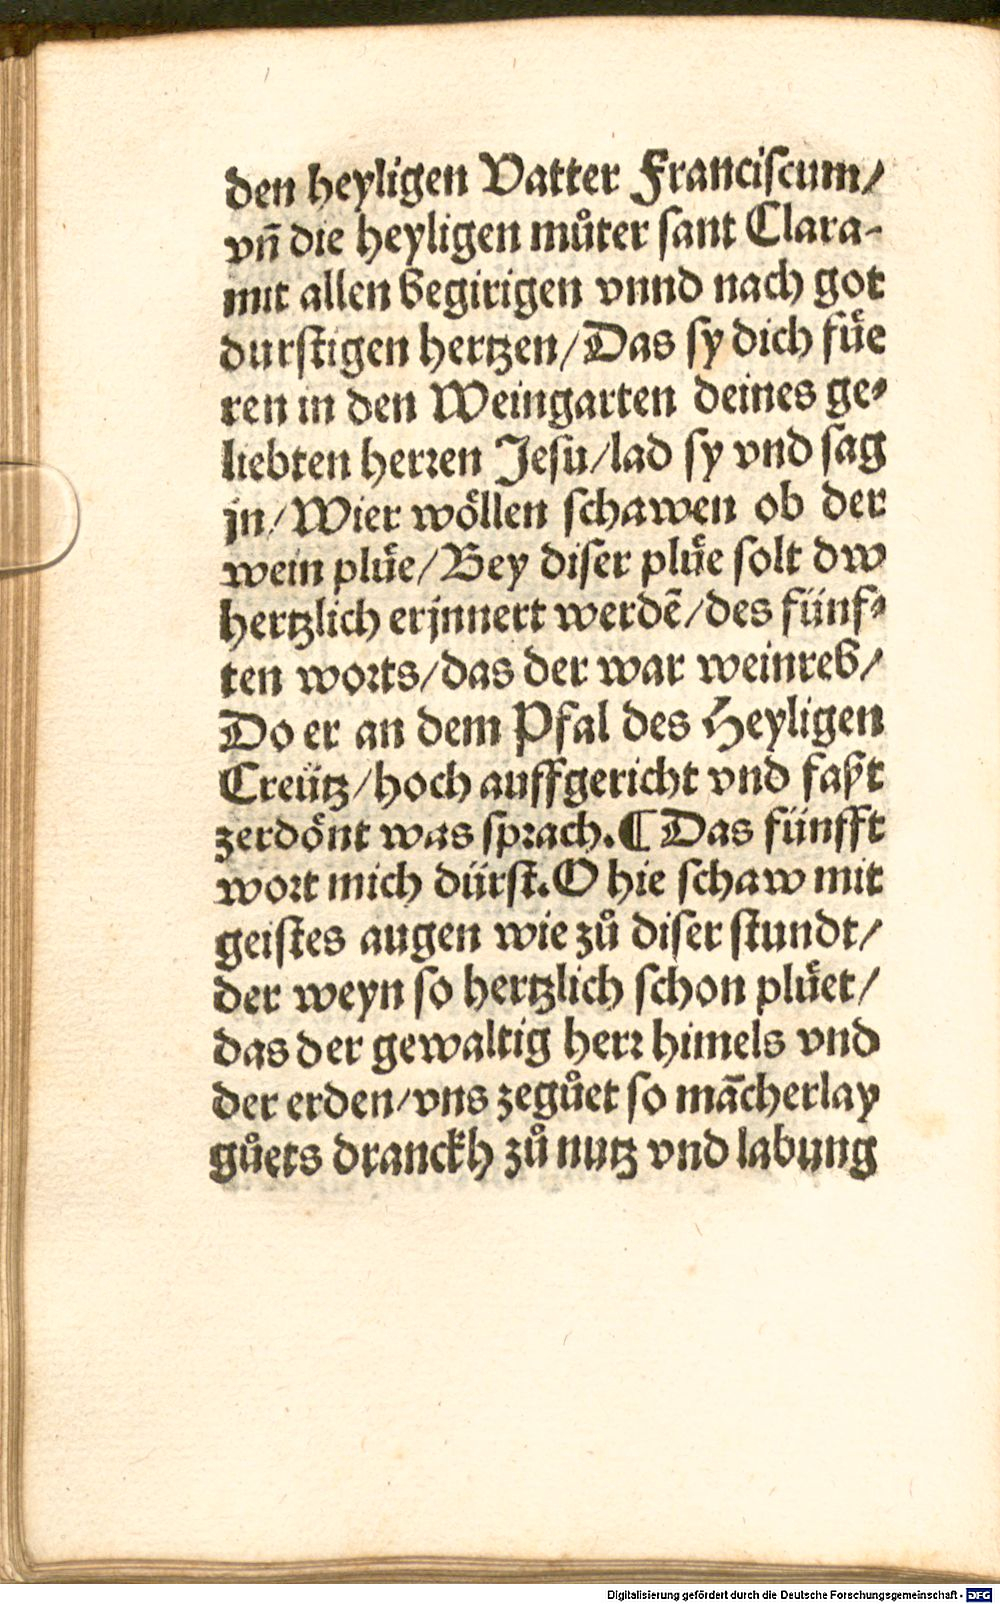 den heyligen Vatter Franciſcum/
vñ die heyligen můter ſant Clara-
mit allen begirigen vnnd nach got
durſtigen hertzen/Das ſy dich fuͤe
ren in den Weingarten deines ge⸗
liebten herꝛen Jeſu/lad ſy vnd ſag
jn/Wier woͤllen ſchawen ob der
wein pluͤe/Bey diſer pluͤe ſolt dw
hertzlich erjnnert werdē/des fünf⸗
ten woꝛts/das der war weinreb/
Do er an dem Pfal des Heyligen
Creütz/hoch auffgericht vnd faßt
zerdoͤnt was ſpꝛach.¶Das fünfft
woꝛt mich dürſt.O hie ſchaw mit
geiſtes augen wie zů diſer ſtundt/
der weyn ſo hertzlich ſchon pluͤet/
das der gewaltig herꝛ himels vnd
der erden/vns zegůet ſo mācherlay
gůets dranckh zů nutz vnd labung
Digitalisierung gefördert durch die Deutsche Forschungsgemeinschaft - DFG